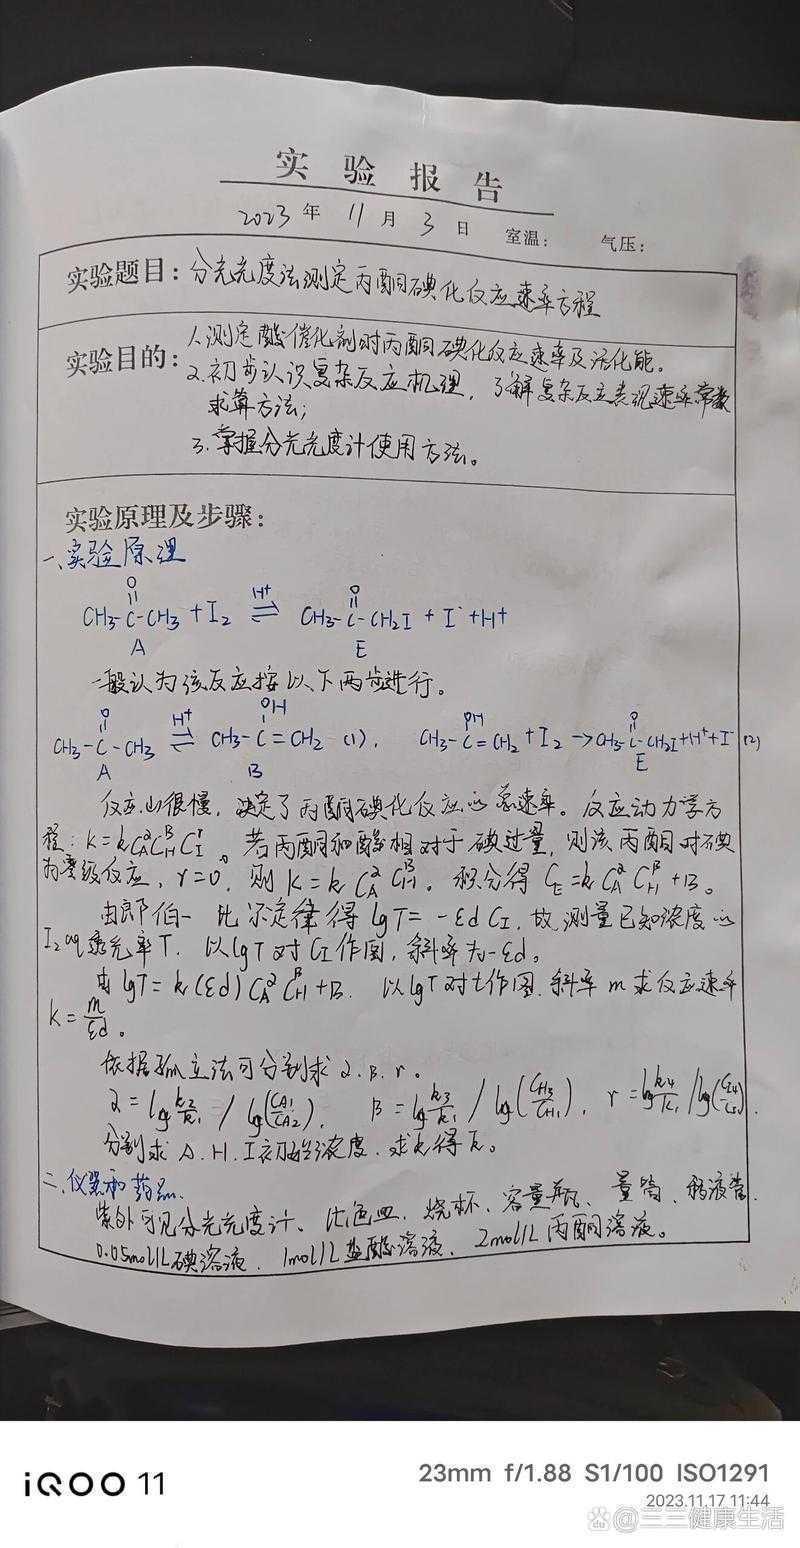 实验报告
2023年 11月 3日 室温: 气压:
实验题目: 分光光度法测定丙酮碘化反应速率方程
实验目的: 1.测定酸催化剂时丙酮碘化反应速率及活化能。
2.初步认识复杂反应机理,了解复杂反应表观速率常数
求算方法;
3.掌握分光光度计使用方法。
实验原理及步骤:
一、实验原理
O
CH3-C-CH3 + I2 ⇌ CH3-C-CH2I + I⁻ + H+
H+ O
A E
一般认为该反应按以下两步进行。
O H+ OH OH O
CH3-C-CH3 ⇌ CH3-C=CH2 (1), CH3-C=CH2+I2→CH3-C-CH2I+H++I⁻ (2)
A B E
反应(1)很慢,决定了丙酮碘化反应的总速率。反应动力学方
程: K=kC_A^αC_H^βC_I^r。若丙酮和酸相对于碘过量,则该丙酮对碘
为零级反应,r=0,则K=kC_A^αC_H^β。积分得C_E=kC_A^αC_H^β+B。
由郎伯一比尔定律得lgT=-εdC_I,故测量已知浓度的
I2 aq透光率T,以lgT对C_I作图,斜率为-εd。
由lgT=k(εd)C_A^αC_H^β+B.以lgT对t作图.斜率m求反应速率
K=m/εd。
依据孤立法可分别求α.β.r。
α=lg k2/k1 / lg(C_A1/C_A2), β=lg k3/k1 / lg(C_H3/C_H1), r=lg k4/k1 / lg(C_I4/C_I1).
分别求A.H.I初始浓度.求k得k。
二、仪器和药品.
紫外可见分光光度计、比色皿、烧杯、容量瓶、量筒、移液管.
0.05mol/L碘溶液、1mol/L盐酸溶液、2mol/L丙酮溶液。
iQOO 11
23mm f/1.88 S1/100 ISO1291
2023.11.17 11:44
Bai du @三三健康生活